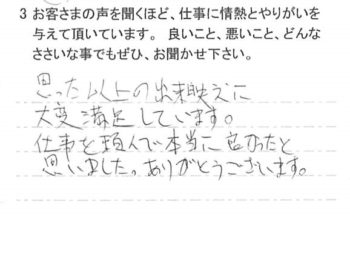 3 お客さまの声を聞くほど、仕事に情熱とやりがいを
与えて頂いています。 良いこと、悪いこと、どんな
ささいな事でもぜひ、お聞かせ下さい。
思った以上の出来映えに
大変満足しています。
仕事を頼んで本当に良かったと
思いました。ありがとうございます。